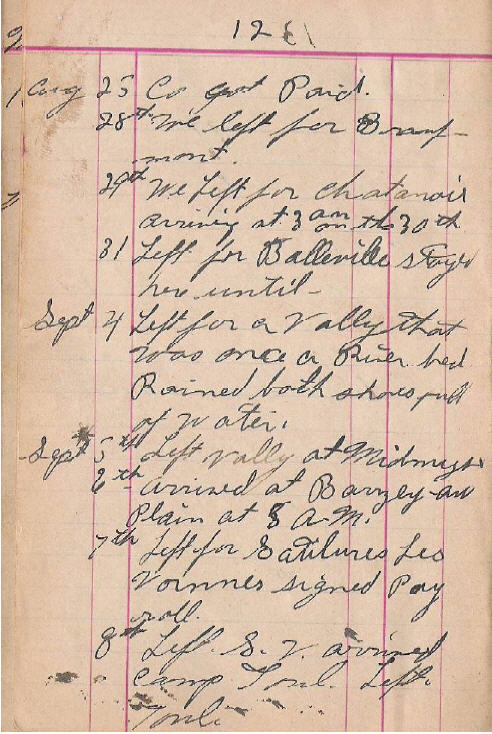 12
Aug 25 Co got Paid.
28th We left for Brauf-
mont.
29th We Left for Chatanoir
arriving at 3 am on th 30th
31 Left for Balleville stayed
here until-
Sept 4 Left for a Vally that
was once a River bed
Rained both shoes full
of water.
Sept 5th Left Vally at Midnight
6th arrived at Barzey-au
Plain at 8 A-M.
7th Left for Satilures Les
Vornnes signed Pay
roll.
8th Left S. V. arrived
Camp Toul. Left
Toul.